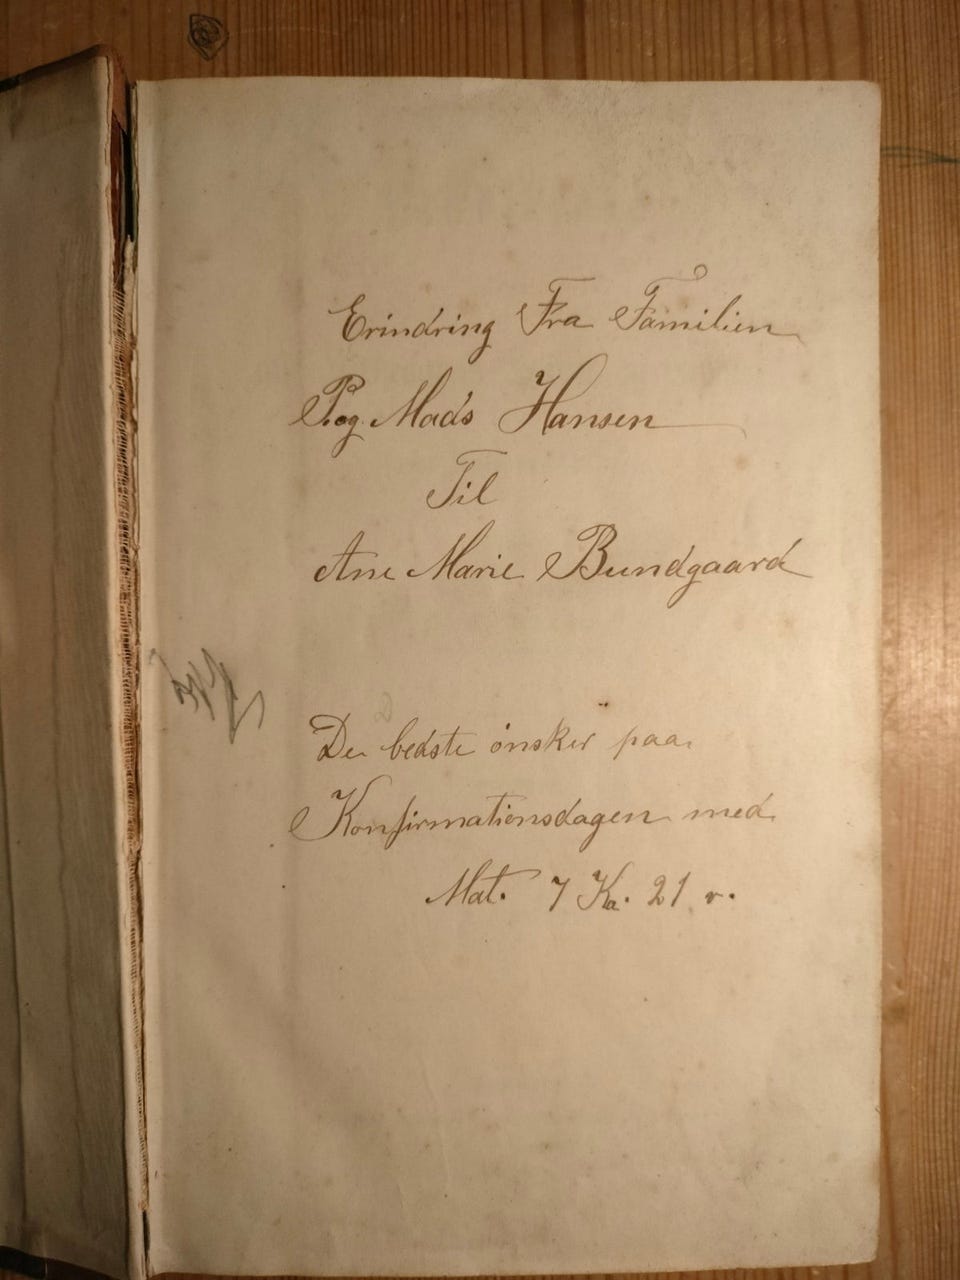 Erindring Fra Familien
P. og Mads Hansen
Til
Ane Marie Bundgaard
De bedste ønsker paa
Konfirmationsdagen med
Mat. 7 Ka. 21 v.